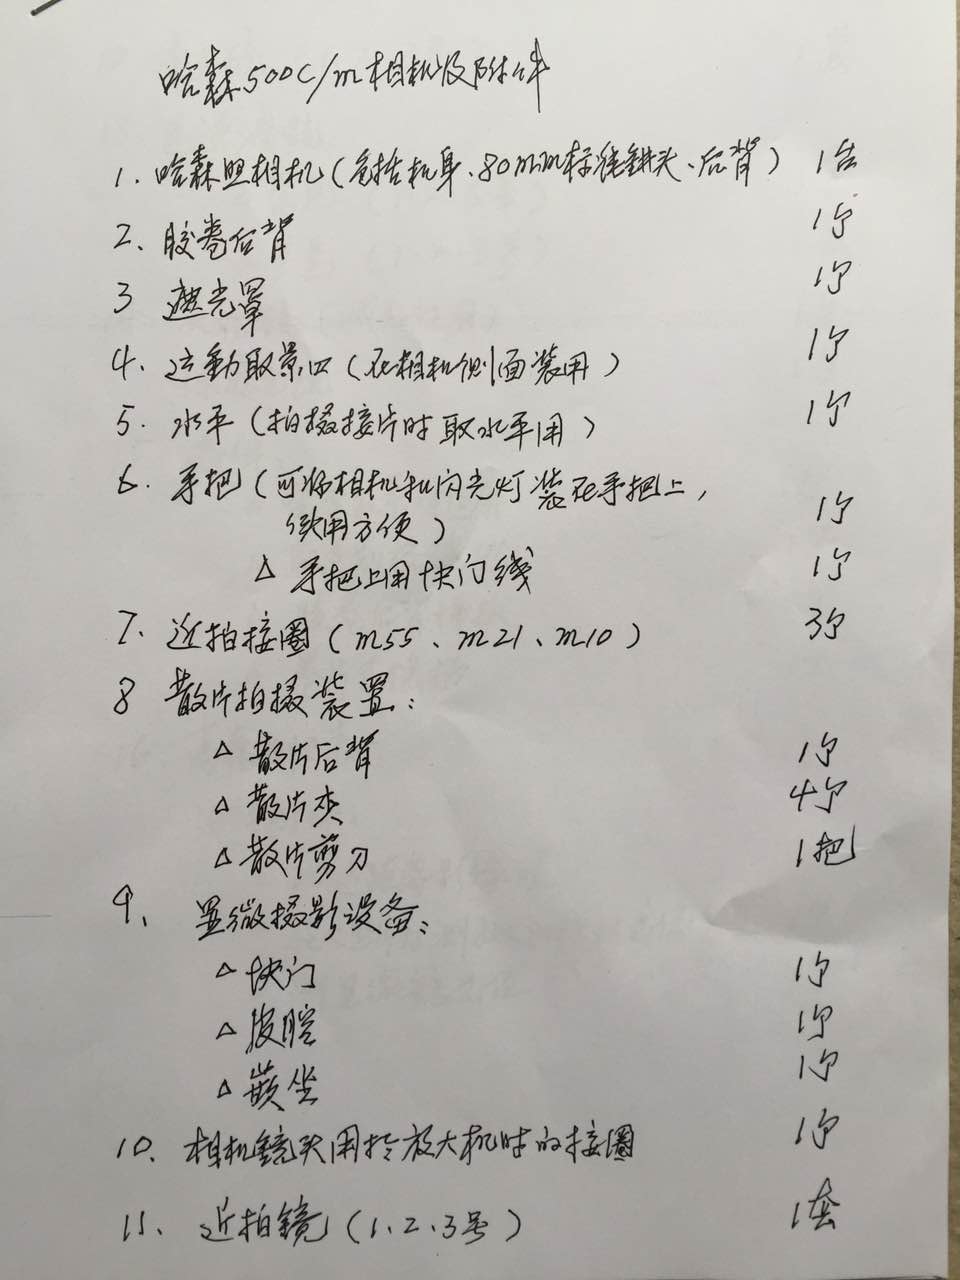 哈森500C/m相机及附件
1. 哈森照相机(包括机身、80mm标准鏡头、后背) 1台
2、胶卷后背 1个
3 遮光罩 1个
4、运動取景口(在相机侧面装用) 1个
5、水平(拍摄接片时取水平用) 1个
6、手把(可将相机和闪光灯装在手把上,
使用方便) 1个
△ 手把上用快门线 1个
7、近拍接圈(m55、m21、m10) 3个
8 散片拍摄装置:
△ 散片后背 1个
△ 散片夹 4个
△ 散片剪刀 1把
9、显微摄影设备:
△ 快门 1个
△ 皮腔 1个
△ 嵌坐 1个
10、相机鏡头用于放大机时的接圈 1个
11、近拍鏡(1.2.3号) 1套